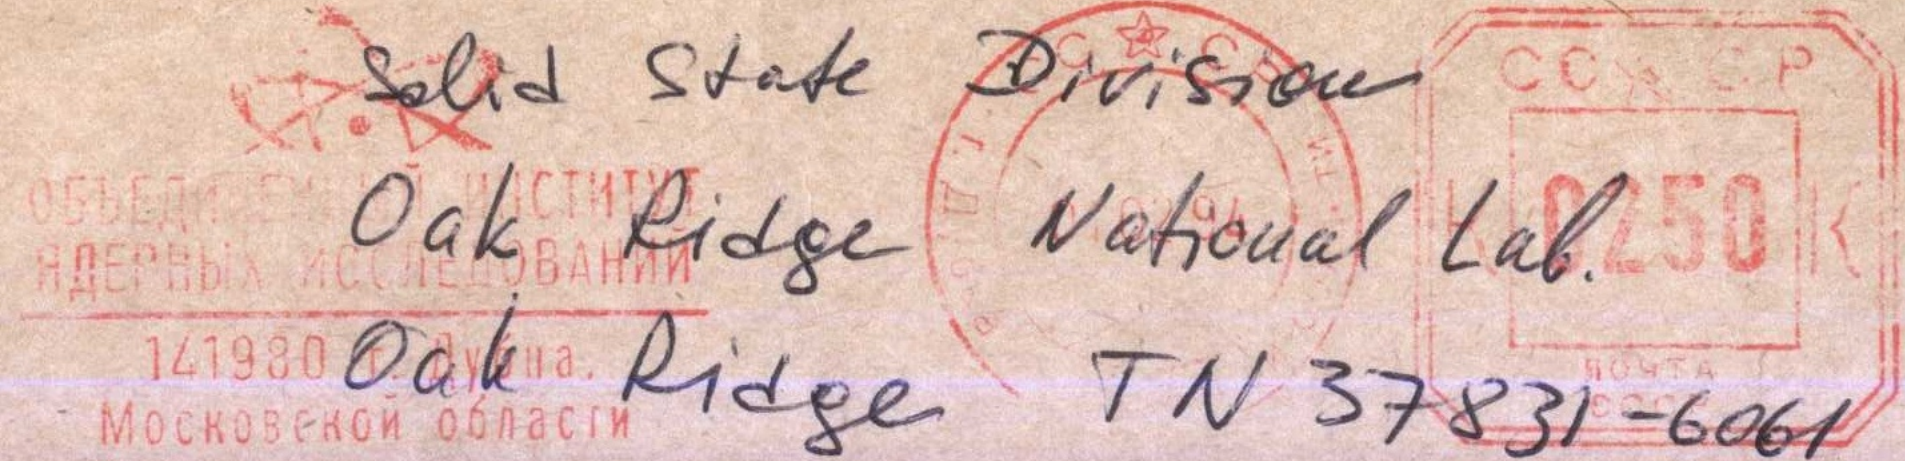 Solid State Division
Oak Ridge National Lab.
Oak Ridge TN 37831-6061
ОБЪЕДИНЕННЫЙ ИНСТИТУТ
ЯДЕРНЫХ ИССЛЕДОВАНИЙ
141980 г. Дубна.
Московской области
СССР
0250
ПОЧТА